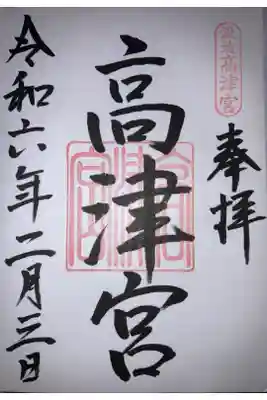 奉拝
高津宮
令和六年二月三日